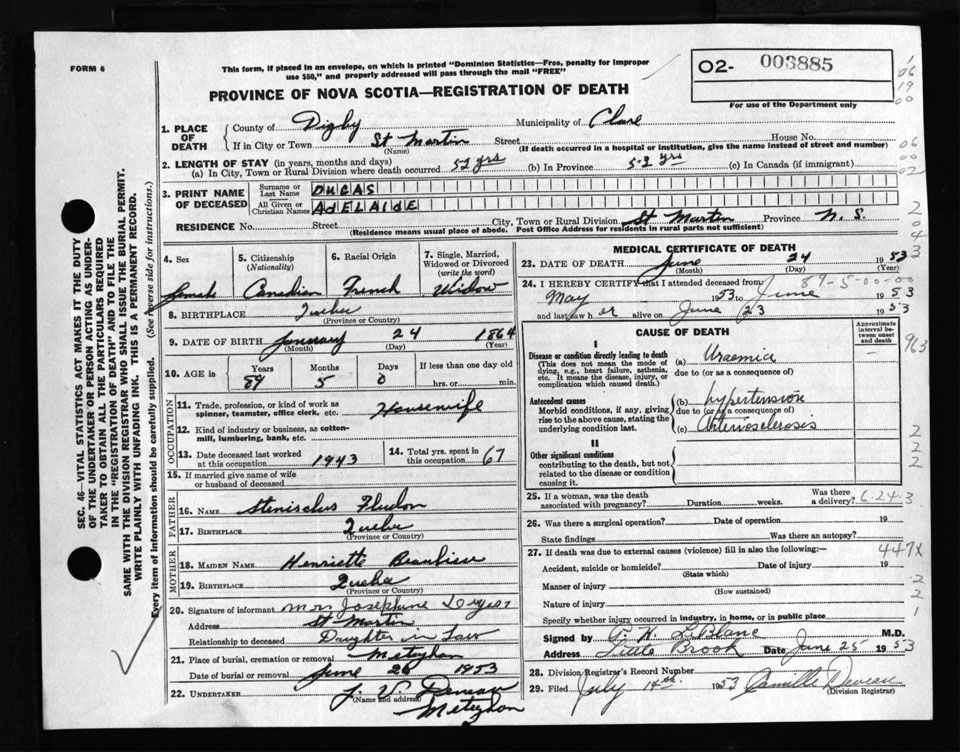 FORM 6
This form, if placed in an envelope, on which is printed "Dominion Statistics—Free, penalty for improper
use $50," and properly addressed will pass through the mail "FREE"
O2- 003885
For use of the Department only
PROVINCE OF NOVA SCOTIA—REGISTRATION OF DEATH
1. PLACE OF DEATH
County of Digby Municipality of Clare
If in City or Town St Martin Street House No.
(Name) (If death occurred in a hospital or institution, give the name instead of street and number)
2. LENGTH OF STAY (in years, months and days)
(a) In City, Town or Rural Division where death occurred 52 yrs (b) In Province 52 yrs (c) In Canada (if immigrant)
3. PRINT NAME OF DECEASED
Surname or Last Name DUGAS
All Given or Christian Names ADELAIDE
RESIDENCE No. Street City, Town or Rural Division St Martin Province N. S.
(Residence means usual place of abode. Post Office Address for residents in rural parts not sufficient)
4. Sex
female
5. Citizenship
(Nationality)
Canadian
6. Racial Origin
French
7. Single, Married,
Widowed or Divorced
(write the word)
Widow
8. BIRTHPLACE
(Province or Country)
9. DATE OF BIRTH 24 1864
(Month) (Day) (Year)
10. AGE in Years Months Days If less than one day old
89 5 0 hrs. or min.
OCCUPATION
11. Trade, profession, or kind of work as
spinner, teamster, office clerk, etc. Housewife
12. Kind of industry or business, as cotton-
mill, lumbering, bank, etc.
13. Date deceased last worked
at this occupation 1943
14. Total yrs. spent in
this occupation 67
15. If married give name of wife
or husband of deceased
FATHER
16. NAME
17. BIRTHPLACE
(Province or Country)
MOTHER
18. MAIDEN NAME Henriette
19. BIRTHPLACE
(Province or Country)
20. Signature of informant Mrs Josephine Dugas
Address St Martin
Relationship to deceased Daughter in Law
21. Place of burial, cremation or removal Meteghan
Date of burial or removal June 26 1953
22. UNDERTAKER J. V. Deveau
(Name and Address) Meteghan
MEDICAL CERTIFICATE OF DEATH
23. DATE OF DEATH June 24 1953
(Month) (Day) (Year)
24. I HEREBY CERTIFY that I attended deceased from:
89-5-00-00
May 1953 to June 1953
and last saw her alive on June 23 1953
CAUSE OF DEATH
Approximate
interval be-
tween onset
and death
I
Disease or condition directly leading to death
(This does not mean the mode of
dying, e.g., heart failure, asthenia,
etc. It means the disease, injury, or
complication which caused death.)
(a) Uraemia
due to (or as a consequence of)
Antecedent causes
Morbid conditions, if any, giving
rise to the above cause, stating the
underlying condition last.
(b) hypertension
due to (or as a consequence of)
(c) Arteriosclerosis
II
Other significant conditions
contributing to the death, but not
related to the disease or condition
causing it.
25. If a woman, was the death
associated with pregnancy? Duration weeks. Was there
a delivery? 6-24-3
26. Was there a surgical operation? Date of operation 19
State findings Was there an autopsy?
27. If death was due to external causes (violence) fill in also the following:
447X
Accident, suicide or homicide? Date of injury 19
(State which)
Manner of injury
(How sustained)
Nature of injury
Specify whether injury occurred in industry, in home, or in public place
Signed by LeBlanc M.D.
Address Little Brook Date June 25 1953
28. Division Registrar's Record Number
29. Filed July 14th. 1953 Camille Deveau
(Division Registrar)
963
SEC. 46—VITAL STATISTICS ACT MAKES IT THE DUTY
OF THE UNDERTAKER OR PERSON ACTING AS UNDER-
TAKER TO OBTAIN ALL THE PARTICULARS REQUIRED
IN THE "REGISTRATION OF DEATH" AND TO FILE THE
SAME WITH THE DIVISION REGISTRAR WHO SHALL ISSUE THE BURIAL PERMIT.
WRITE PLAINLY WITH UNFADING INK. THIS IS A PERMANENT RECORD.
Every item of information should be carefully supplied. (See reverse side for instructions.)